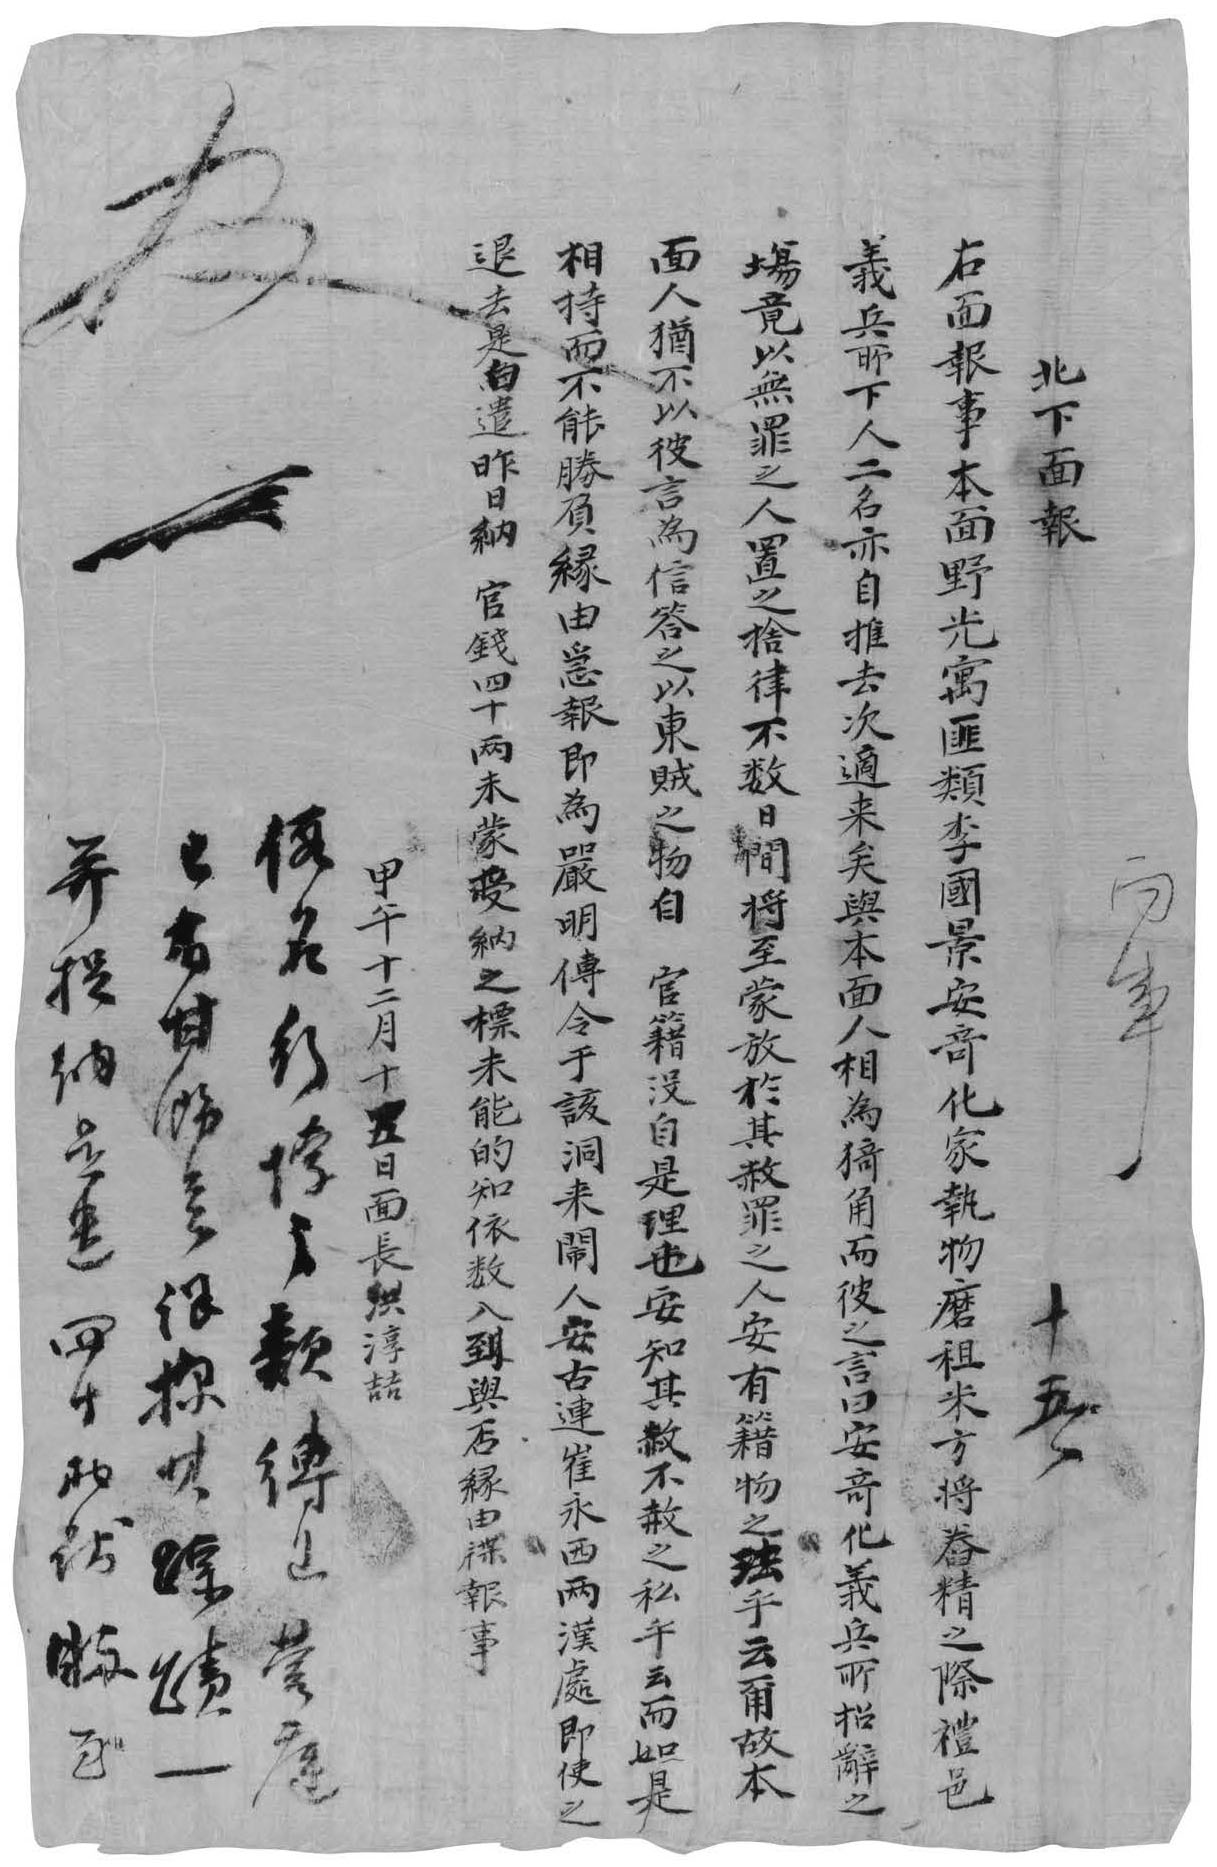 北下面報
十五
右面報事本面野光寓匪類李國景安奇化家執物磨租米方將舂精之際禮邑
義兵所下人二名亦自推去次適来矣與本面人相為猗角而彼之言曰安奇化義兵所招辭之
場竟以無罪之人置之捨律不数日間将至蒙放於其赦罪之人安有籍物之法乎云爾故本
面人猶不以彼言為信答之以東賊之物自 官籍没自是理也安知其赦不赦之私乎云而如是
相持而不能勝負緣由急報即為嚴明傳令于該洞来鬧人安古連崔永西兩漢處即使之
退去是白遣昨日納 官錢四十兩未蒙受納之標未能的知依数入到與否緣由牒報事
甲午十二月十五日面長洪淳喆
類傳
已有甘飭探其踪蹟一
并捉納是遣四十兩錢